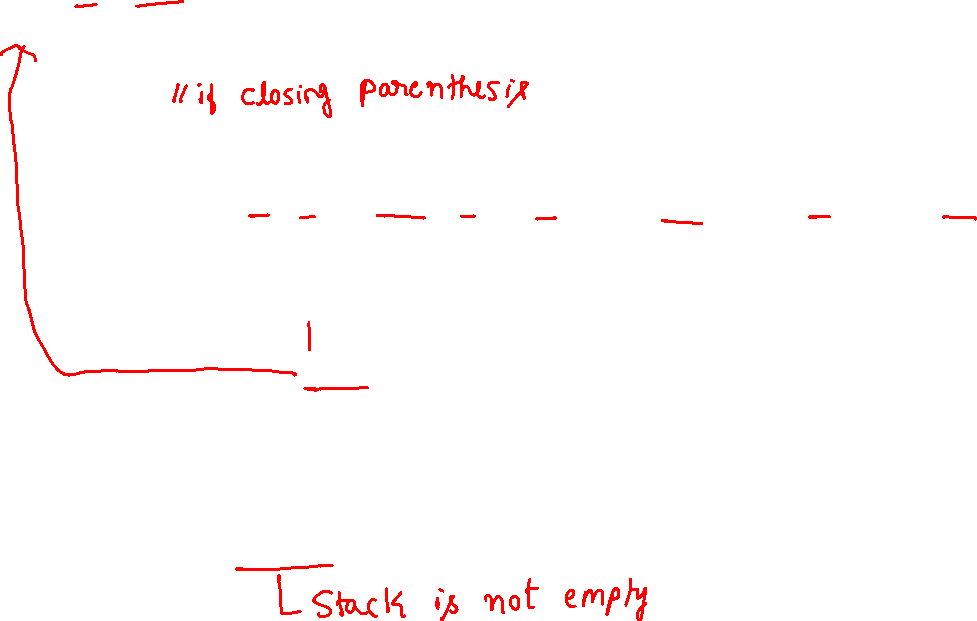 // if closing parenthesis
Stack is not empty